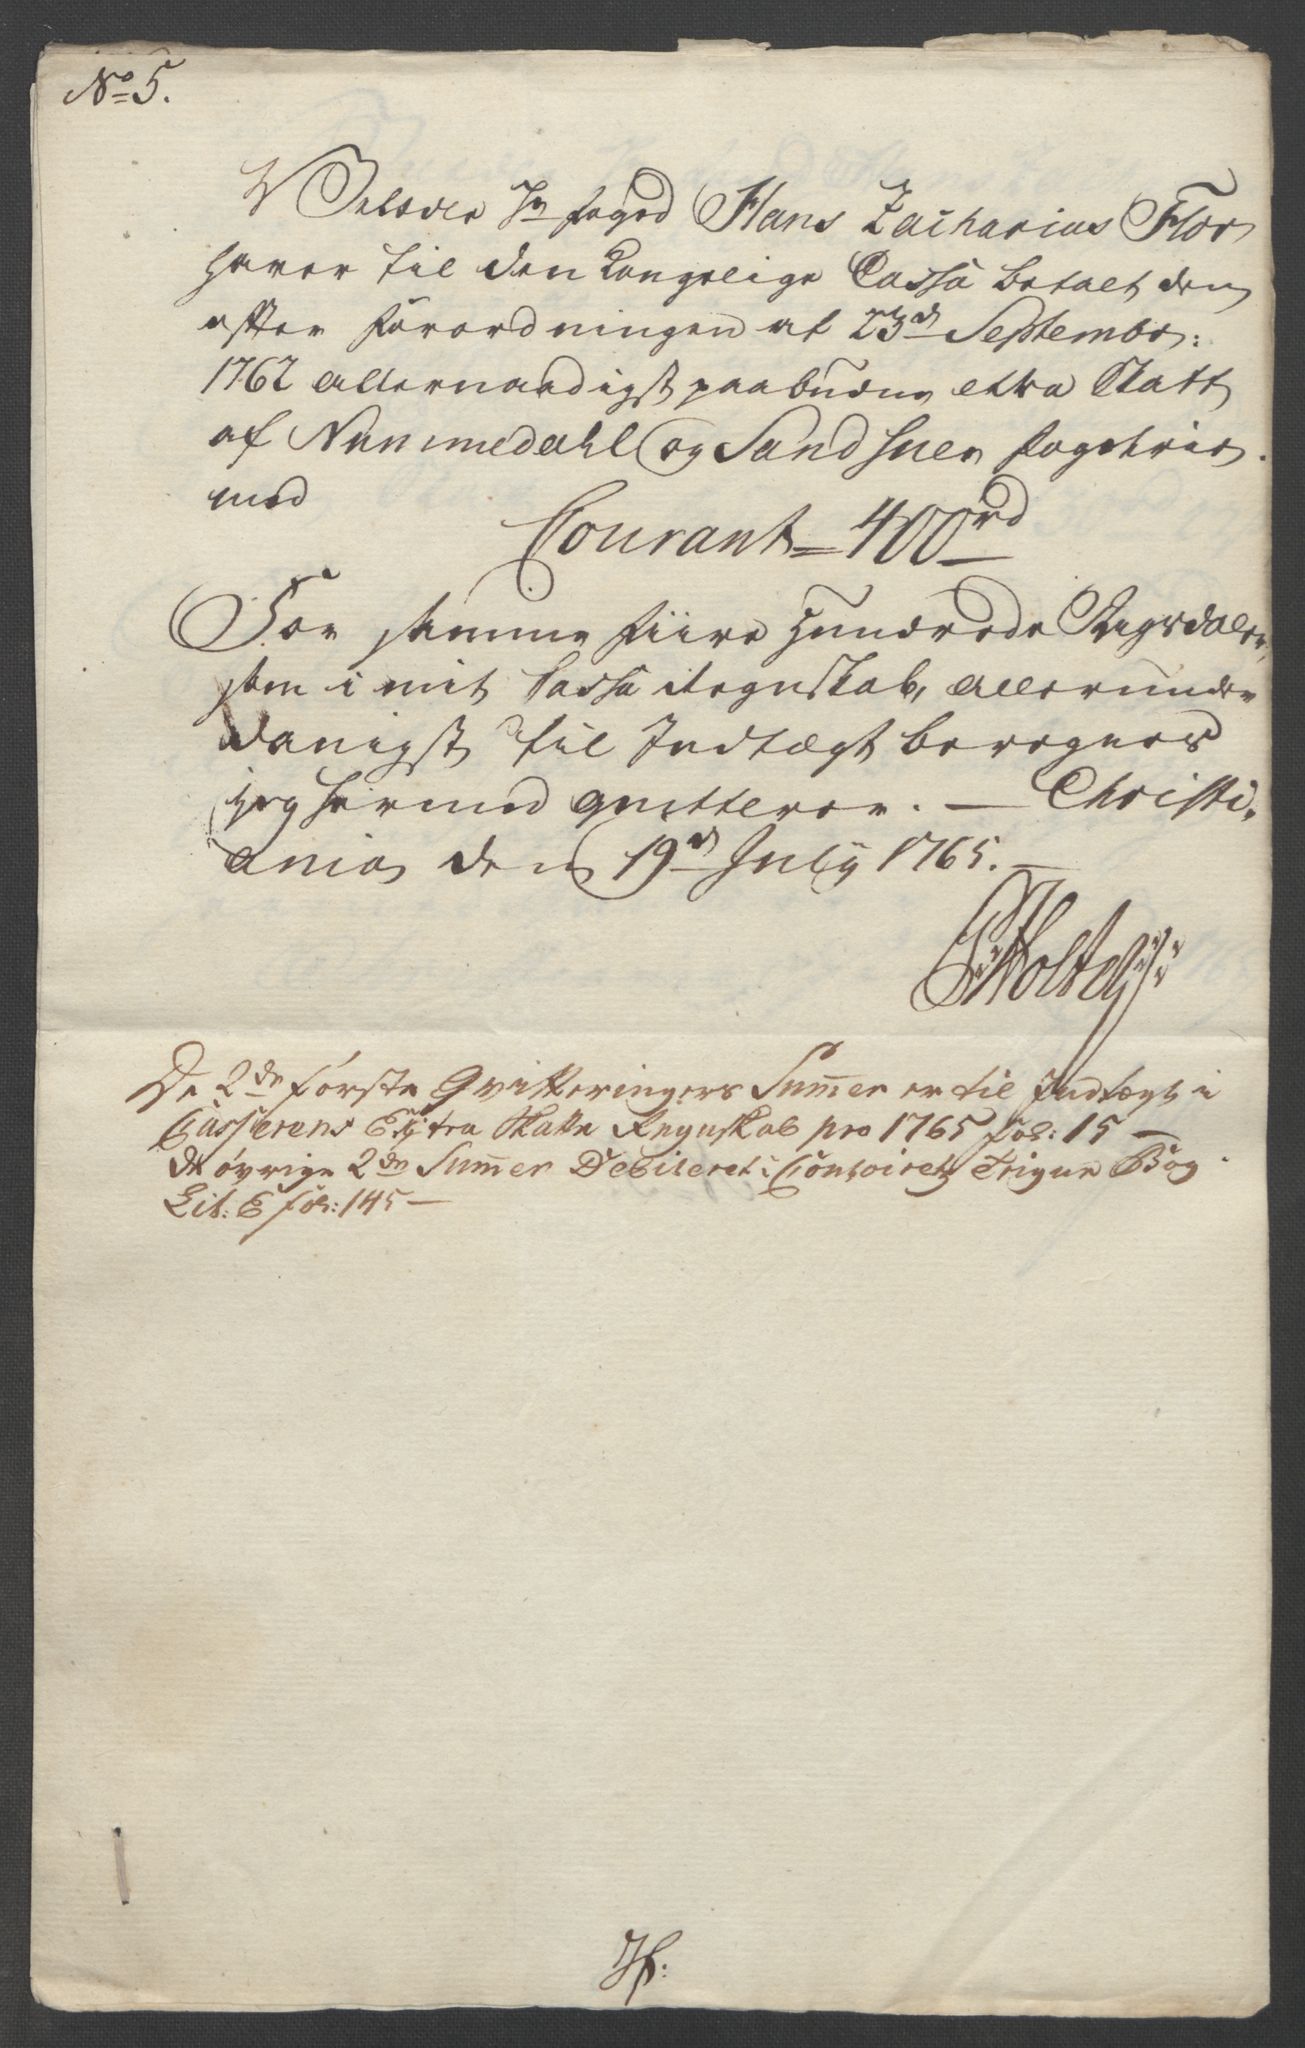 No 5.
Velædle Hr foged Hans Zacharias Flor
haver til den Kongelige Cassa betalt den
efter Forordningen af 23d Septembr:
1762 allernaadigst paabudne extra Skatt
af Nummedahl og Sandsver fogderie
med
Courant = 400 rd
For samme fiire Hundrede Rigsdaler,
som i mit Cassa Regnskab, allerunder
danigst til Indtægt beregnes
jeg hermed qvitterer. — Christi-
ania den 19d July 1765. —
Holtes
De 2de første Qvitteringers Summer er til Indtægt i
Casserens Extra Skatte Regnskab pro 1765 fol: 15 —
de øvrige 2de Summer Debiteret i Contoirets Bog
Lit: E fol: 145 —